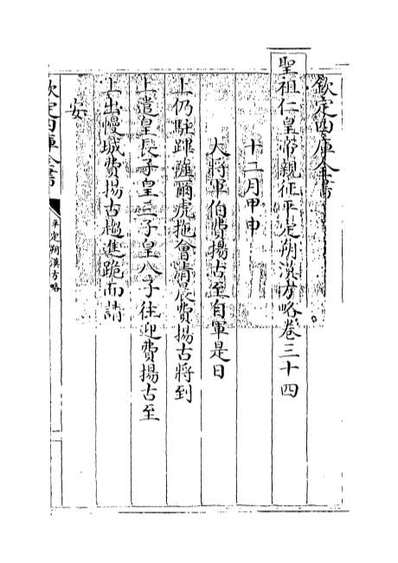 欽定四庫全書
聖祖仁皇帝親征平定朔漠方略卷三十四
十二月甲申
大將軍伯費揚古至自軍是日
上仍駐蹕薩爾虎拖會清晨費揚古將到
上遣皇長子皇三子皇八子往迎費揚古至
上出幔城費揚古趨進跪而請
安
欽定四庫全書
平定朔漠方略